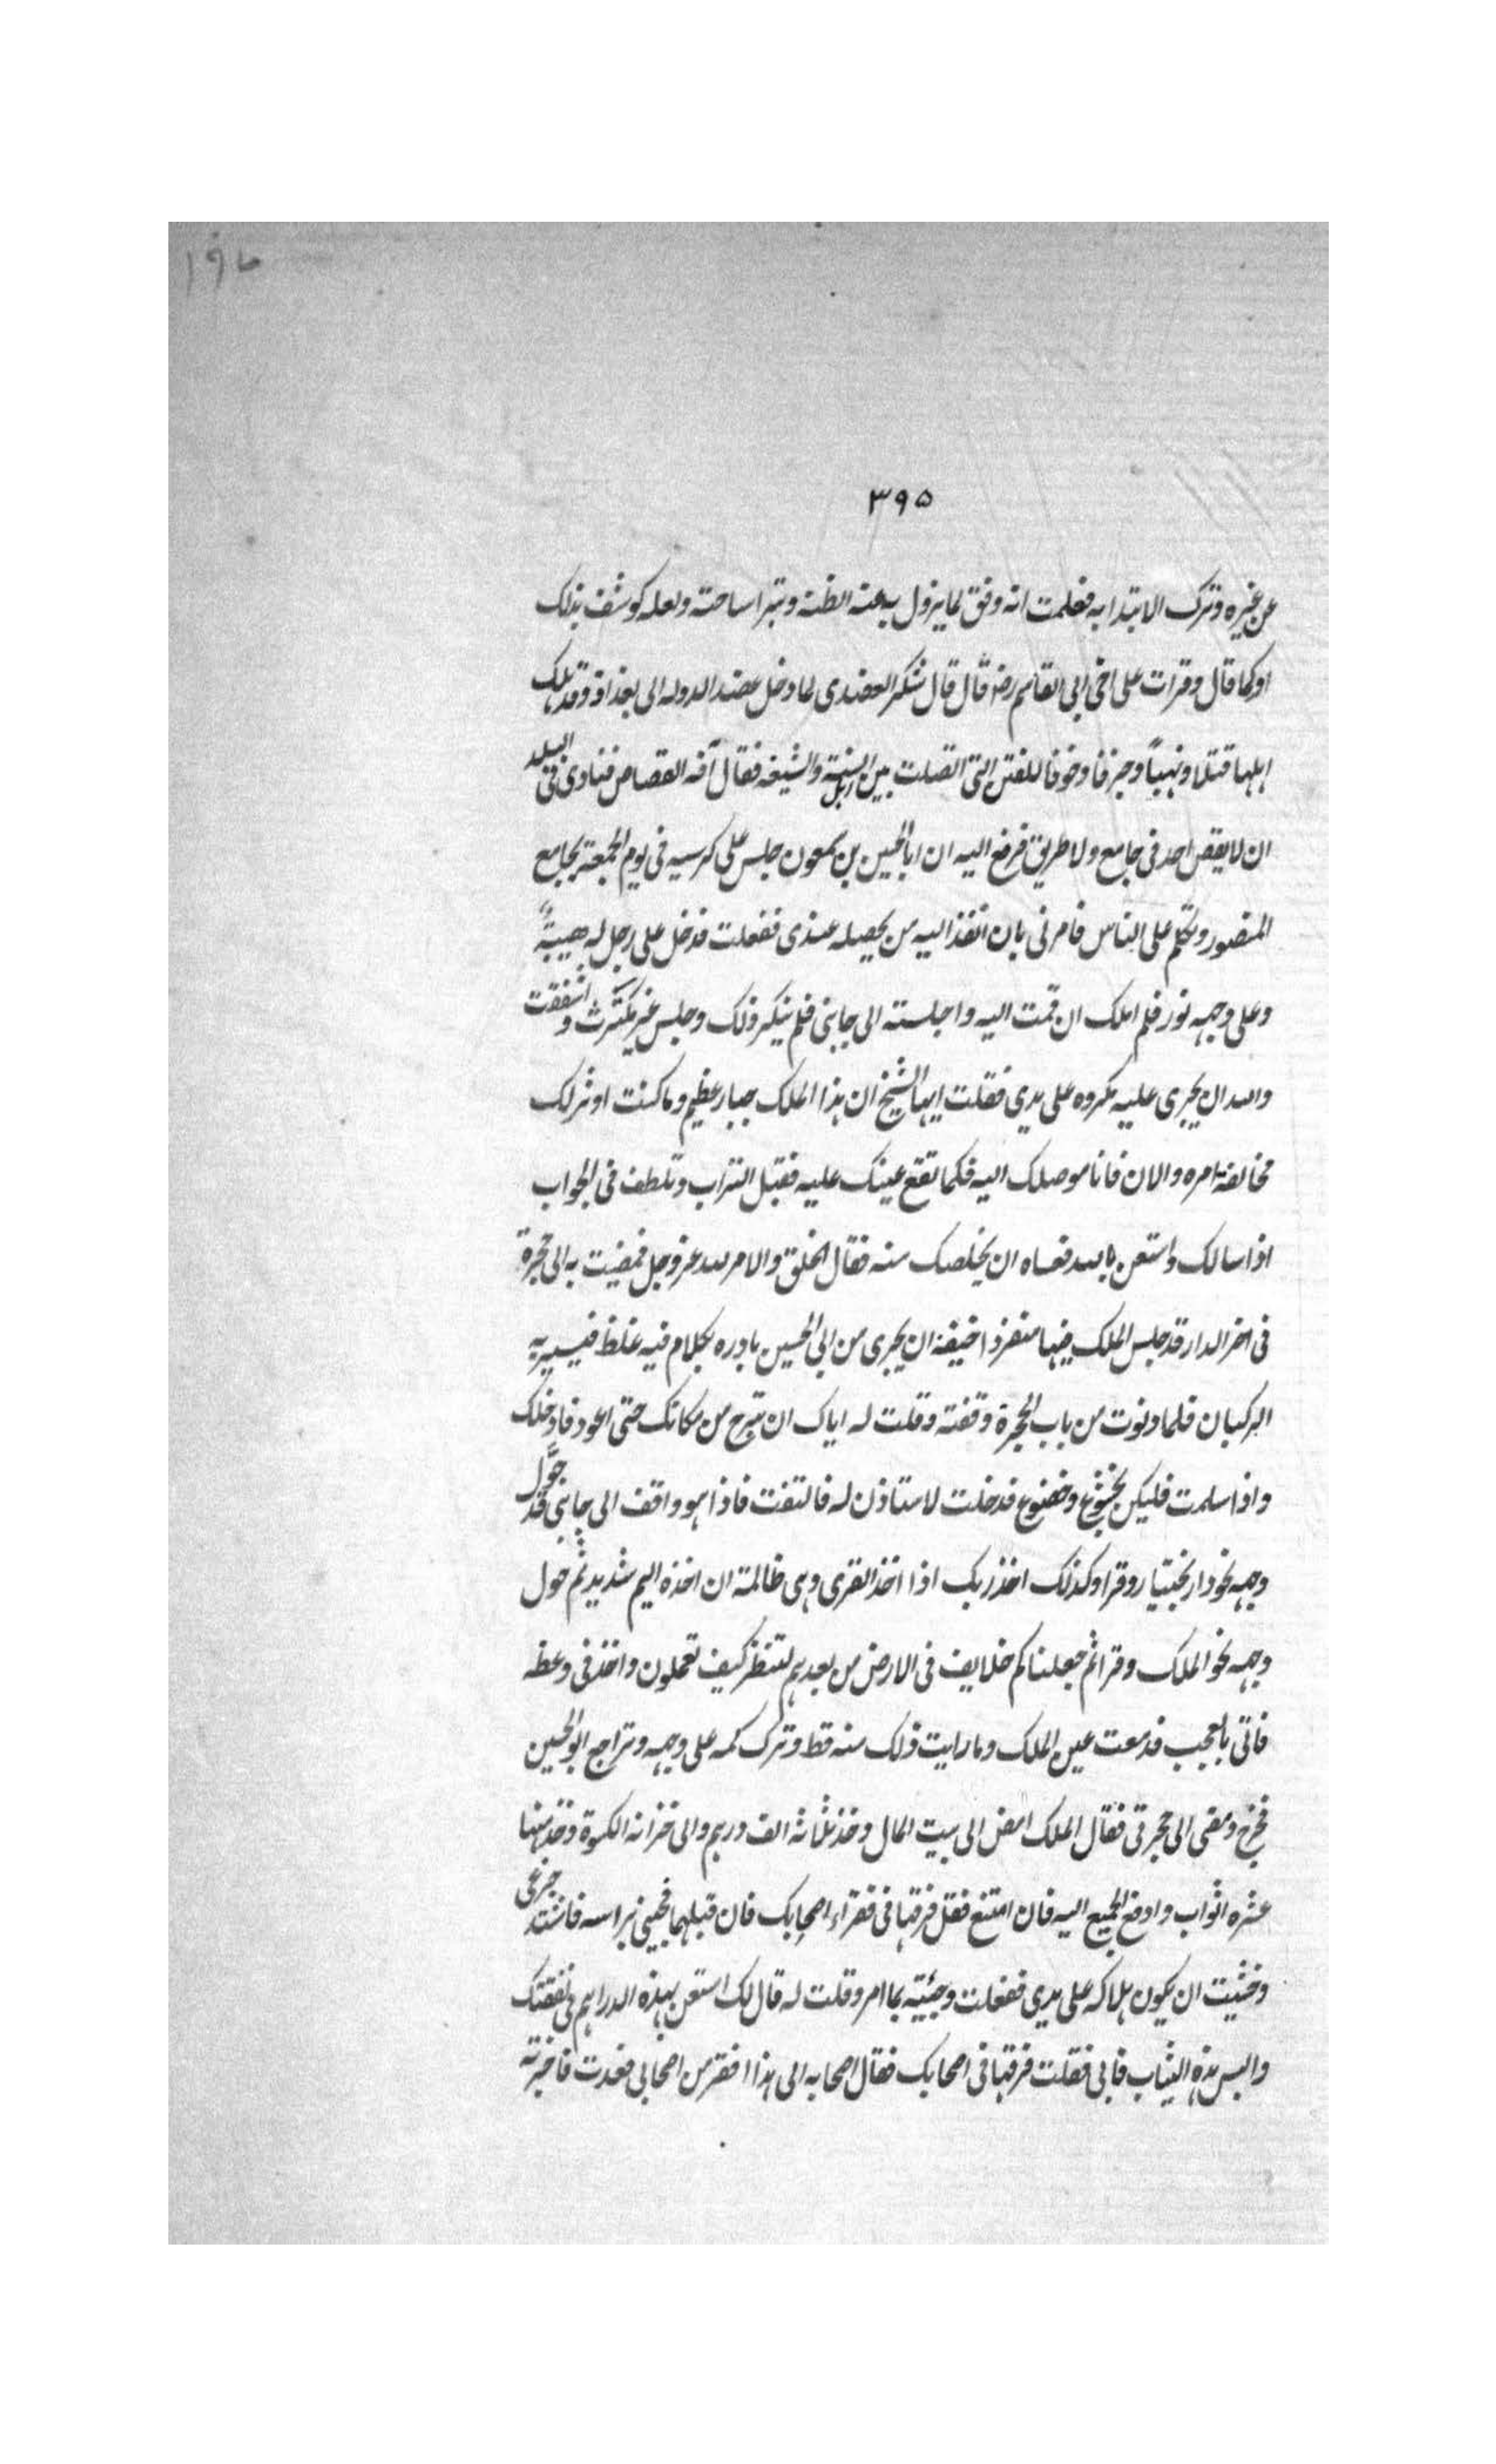 ١٩٨
٣٩٥
عن غيره وترك الابتدا به فعلمت انه وفق لما يزول به عنه الظنة وتبرا ساحته ولعله كوشف بذلك
او كما قال وقرات على اخي ابي القاسم رضه قال قال شكر العضدى لما دخل عضد الدوله الى بغداد وقد هلك
اهلها قتلا ونهباً وحرقا وخوفا للفتن التى اتصلت بين اهل السنة والشيعه فقال آفه القصاص فنادى فى البلد
ان لا يقص احد فى جامع ولا طريق فرفع اليه ان ابا الحسين بن سمعون جلس على كرسيه فى يوم الجمعة بجامع
المنصور وتكلم على الناس فامرنى بان انفذ اليه من يحصله عندى ففعلت فدخل على رجل له هيبةً
وعلى وجهه نور فلم املك ان قمت اليه واجلسته الى جانبى فلم ينكر ذلك وجلس غير مكترث واشفقت
والله ان يجرى عليه مكروه على يدى فقلت ايها الشيخ ان هذا الملك جبار عظيم وما كنت اوثر لك
مخالفة امره والان فانا موصلك اليه فكما تقع عينك عليه فقبل التراب وتلطف فى الجواب
اذا سالك واستعن بالله فعساه ان يخلصك منه فقال الخلق والامر لله عز وجل فمضيت به الى حجرة
فى اخر الدار قد جلس الملك فيها منفردا خيفة ان يجرى من ابى الحسين بادره بكلام فيه غلظ فيسير به
الركبان فلما دنوت من باب الحجرة وقفته وقلت له اياك ان تبرح من مكانك حتى اعود فادخلك
واذا سلمت فليكن بخشوع وخضوع فدخلت لاستاذن له فالتفت فاذا هو واقف الى جانبى قد حوَّل
وجهه نحو دار بختيار وقرا وكذلك اخذ ربك اذا اخذ القرى وهى ظالمة ان اخذه اليم شديد ثم حول
وجهه نحو الملك وقرا ثم جعلناكم خلايف فى الارض من بعدهم لننظر كيف تعملون واخذ فى وعظه
فاتى بالعجب فدمعت عين الملك وما رايت ذلك منه قط وترك كمه على وجهه وتراجع ابو الحسين
فخرج ومضى الى حجرتى فقال الملك امض الى بيت المال وخذ ثلثة الف درهم والى خزانه الكسوة وخذ منها
عشره اثواب وادفع الجميع اليه فان امتنع فقل فرقها فى فقراء اصحابك فان قبلها فجيئنى براسه فاشتد جزعى
وخشيت ان يكون هلاكه على يدى ففعلت وجيئته بما امر وقلت له قال لك استعن بهذه الدراهم فى نفقتك
والبس هذه الثياب فابى فقلت فرقها فى اصحابك فقال اصحابه الى هذا افقر من اصحابى فعدت فاخبرته